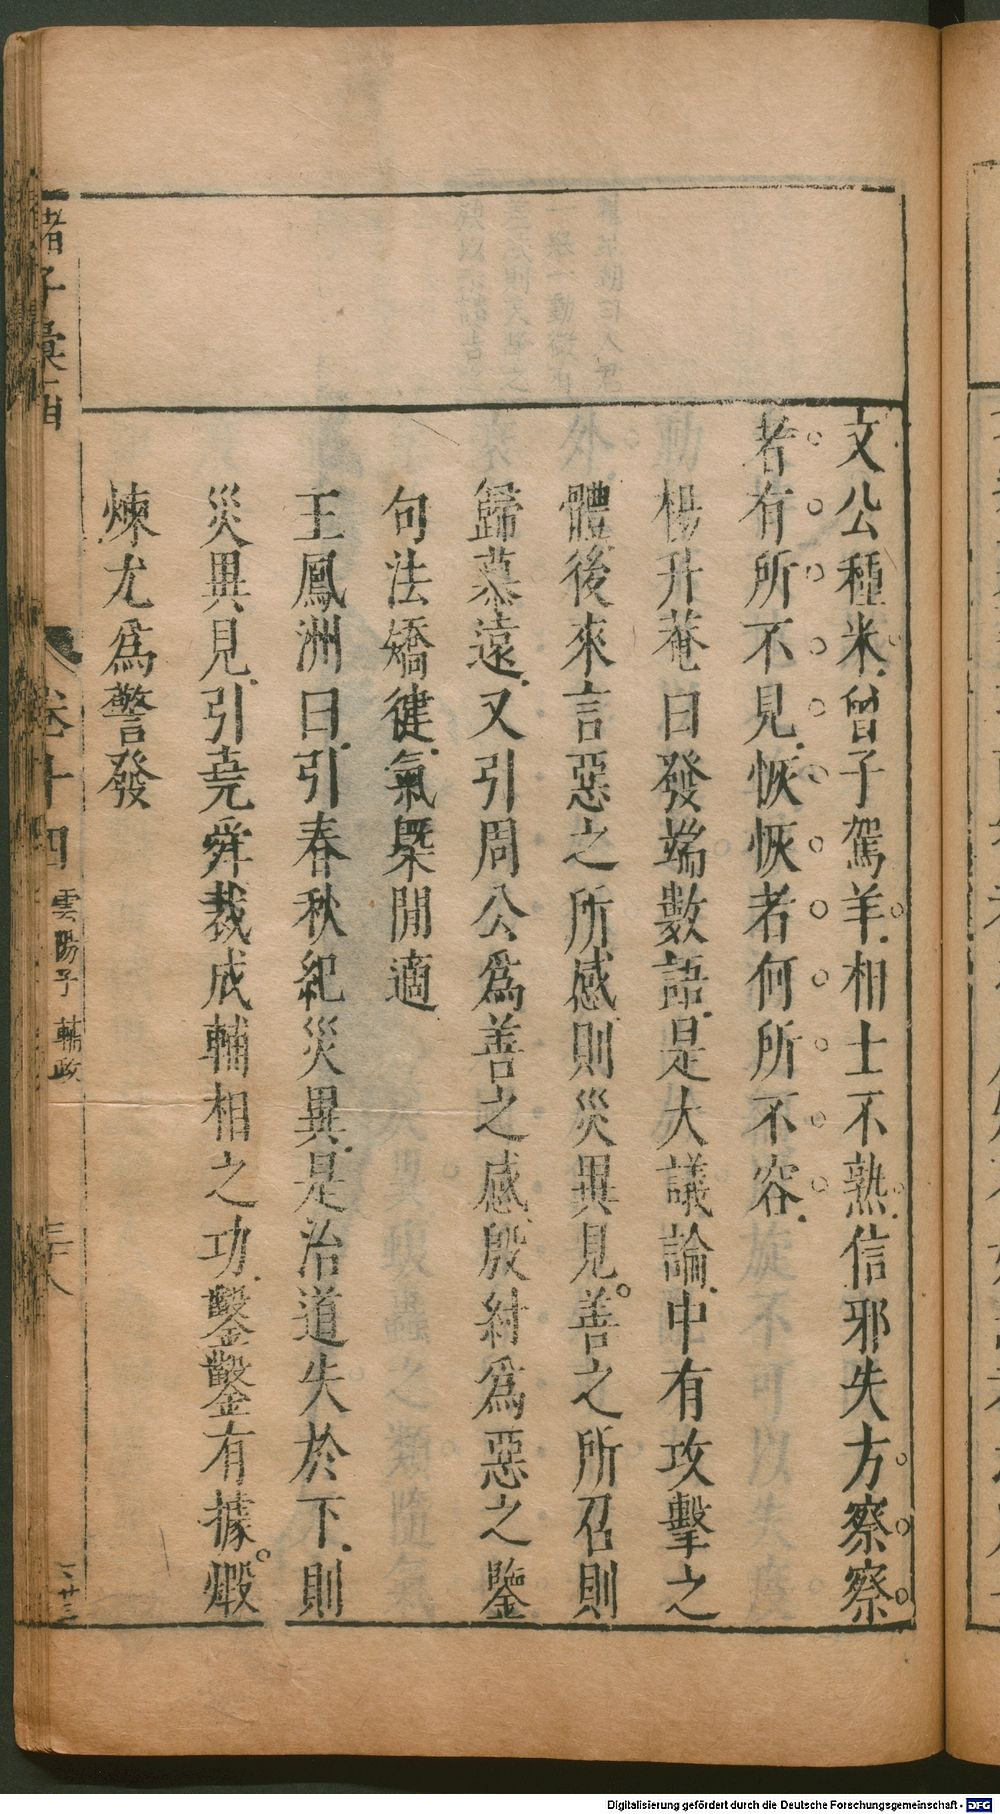 文公種米曾子駕羊相士不熟信邪失方察察
者有所不見恢恢者何所不容
楊升菴曰發端數語是大議論中有攻擊之
體後來言惡之所感則災異見善之所召則
歸慕遠又引周公為善之感殷紂為惡之鑒
句法矯健氣槩閒適
王鳳洲曰引春秋紀災異是治道失於下則
災異見引堯舜裁成輔相之功鑿鑿有據煅
煉尤為警發
諸子彙函
卷十四 雲陽子 輔政
三十八
廿三
Digitalisierung gefördert durch die Deutsche Forschungsgemeinschaft - DFG